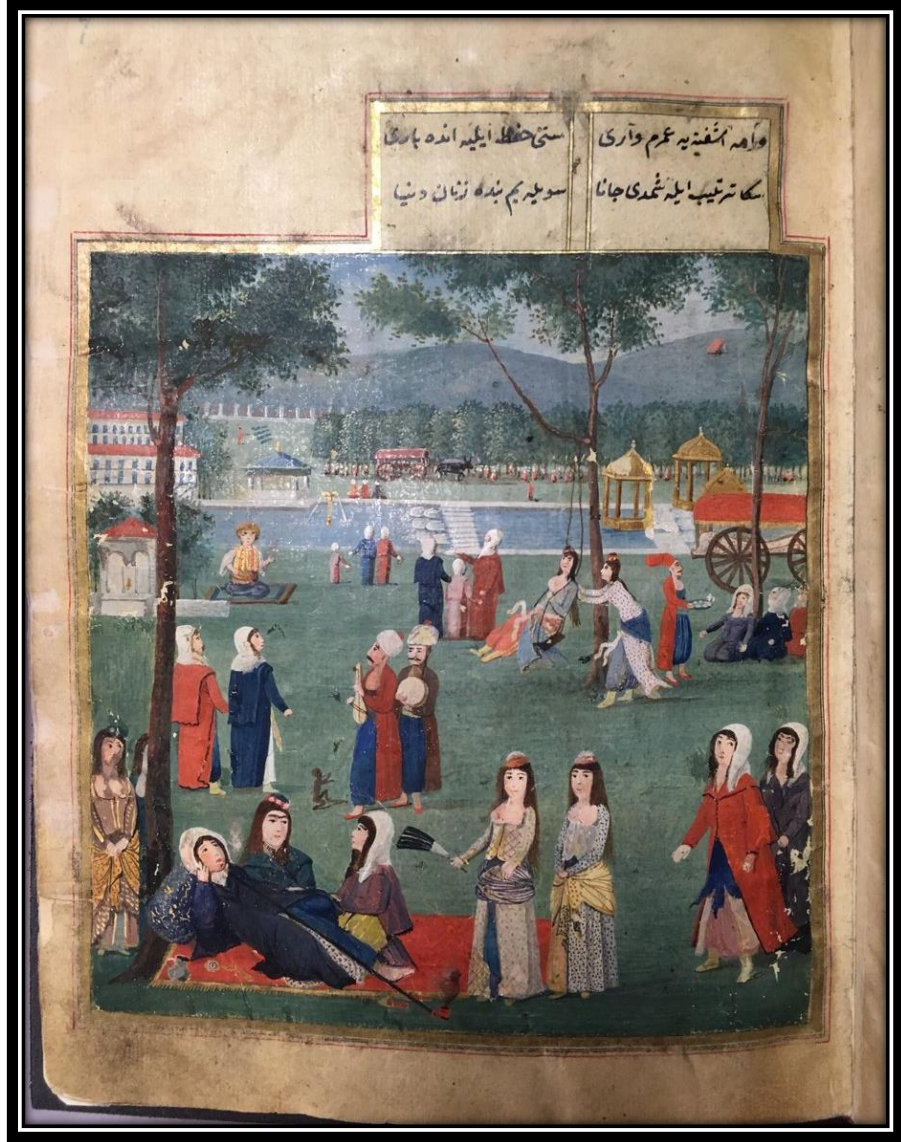 وارمه اشفته یه عمرم واری سنی حفظ ایلیه انده باری
سكا ترتیب ایله شمدی جانا سویلیه یم بنده زنان دنیا